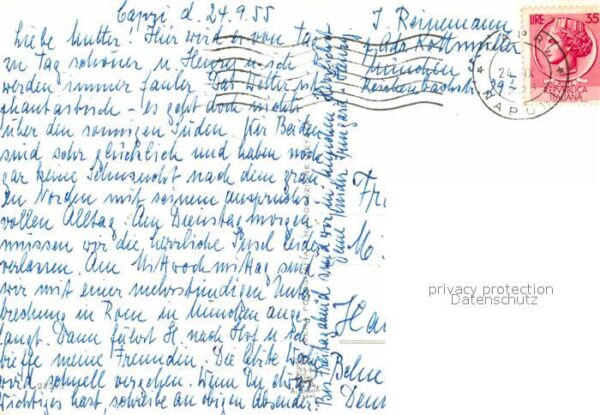 Capri d. 24.9.55
Liebe Mutter! Hier wird es von Tag
zu Tag schöner u. Henry u. ich
werden immer fauler. Das Wetter ist
phantastisch - es geht doch nichts
über den sonnigen Süden. Wir Beiden
sind sehr glücklich und haben noch
gar keine Sehnsucht nach dem grau
en Norden mit seinem anspruchs
vollen Alltag. Am Dienstag morgen
müssen wir die herrliche Insel leider
verlassen. Am Mittwoch mittag sind
wir mit einer mehrstündigen Unter
brechung in Rom in München ange
langt. Dann fährt H. nach Hof u. ich
treffe meine Freundin. Die letzte Woche
wird schnell vergehen. Wenn Du etwas
Wichtiges hast, schreibe an obigen Absender.
Bis Freitag abend sind wir
Deine Kinder Irmgard u. Henry
J. Reinemann
München
LIRE 35
24. IX
NAPOLI
REPVBBLICA
ITALIANA
Fr
M
Ha
privacy protection
Datenschutz